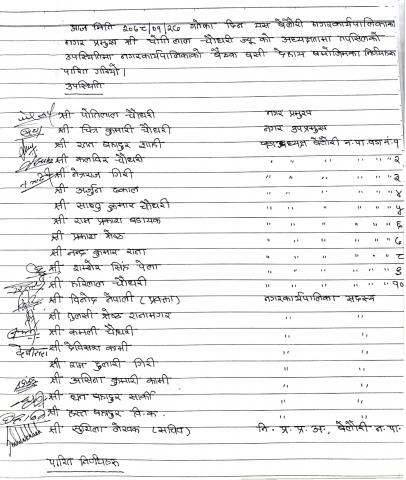 आज मिति २०७८/०९/२० गतेका दिन यस बेलौरी नगरकार्यपालिकाका
नगर प्रमुख श्री पोतिलाल चौधरी ज्यू को अध्यक्षतामा तपसिलको
उपस्थितिमा नगरकार्यपालिकाको बैठक बसी देहाय बमोजिमका निर्णयहरु
पारित गरियो ।
उपस्थिति
श्री पोतिलाल चौधरी नगर प्रमुख
श्री चित्र कुमारी चौधरी नगर उपप्रमुख
श्री रतन बहादुर शाही वडा अध्यक्ष बेलौरी न.पा. वडा नं. १
श्री कलविर चौधरी " " " " " २
श्री नेत्रराज गिरी " " " " " ३
श्री अर्जुन ढकाल " " " " " ४
श्री साधु कुमार चौधरी " " " " " ५
श्री राम प्रकाश बडायक " " " " " ६
श्री प्रकाश श्रेष्ठ " " " " " ७
श्री नन्द कुमार राना " " " " " ८
श्री शमशेर सिंह ऐला " " " " " ९
श्री हरिलाल चौधरी " " " " " १०
श्री विनोद नेपाली (प्रवक्ता) नगरकार्यपालिका सदस्य
श्री तुलसी श्रेष्ठ रानामगर " "
श्री कमनी चौधरी " "
देविसरा श्री देविसरा कामी " "
श्री राम दुलारी गिरी " "
श्री असिना कुमारी कामी " "
श्री धन बहादुर सार्की " "
श्री हस्त बहादुर वि.क. " "
श्री सुचिता लेखक (सचिव) नि. प्र. प्र. अ., बेलौरी न. पा.
पारित निर्णयहरु